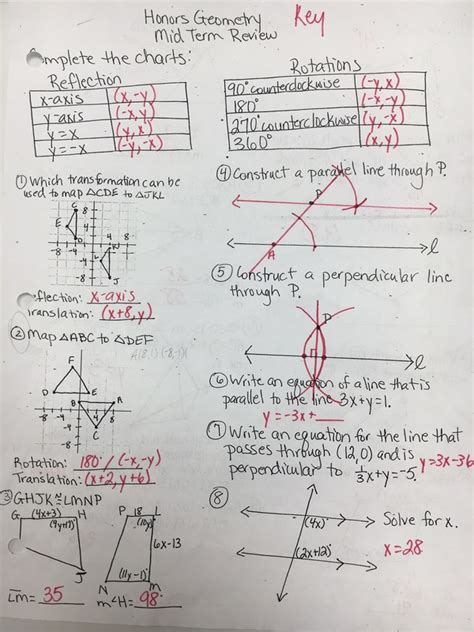 Honors Geometry Key
Mid Term Review
omplete the charts:
Reflection
x-axis (x,-y)
y-axis (-x,y)
y=x (y,x)
y=-x (-y,-x)
Rotations
90° counterclockwise (-y,x)
180° (-x,-y)
270° counterclockwise (y,-x)
360° (x,y)
① Which transformation can be
used to map △CDE to △JKL
C 8
E 4
D
-8 -4 4 8
K
L
-4
-8 J
flection: x-axis
ranslation: (x+8,y)
② Map △ABC to △DEF
F
D E
B A
-8 -4 4 8
-4
C
-8
Rotation: 180° / (-x,-y)
Translation: (x+2, y+6)
③ GHJK ≅ LMNP
G (4x+3) H
(9y+17)°
J
P 18 L
(10y)°
6x-13
(11x-1)°
N m
Lm= 35 m∠H= 98°
④ Construct a parallel line through P.
P
A
l
⑤ Construct a perpendicular line
through P.
P
l
⑥ Write an equation of a line that is
parallel to the line 3x+y=1.
y=-3x+
⑦ Write an equation for the line that
passes through (12,0) and is
perpendicular to 1/3x+y=-5. y=3x-36
⑧
(4x)°
(2x+12)°
Solve for x.
x=28